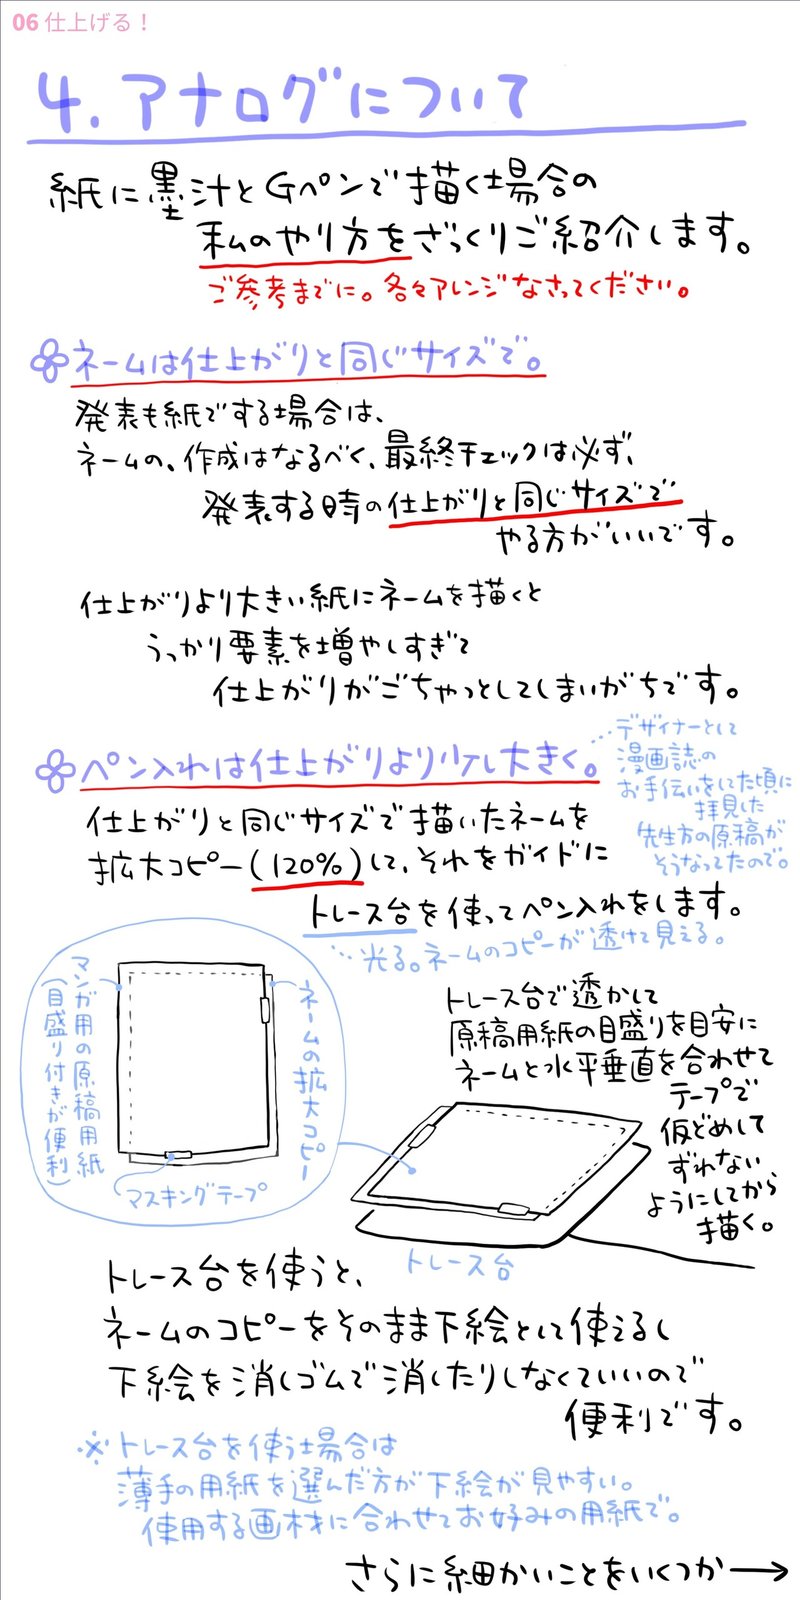 06 仕上げる！
4. アナログについて
紙に墨汁とGペンで描く場合の
私のやり方をざっくりご紹介します。
ご参考までに。各々アレンジなさってください。
ネームは仕上がりと同じサイズで。
発表も紙でする場合は、
ネームの、作成はなるべく、最終チェックは必ず、
発表する時の仕上がりと同じサイズで
やる方がいいです。
仕上がりより大きい紙にネームを描くと
うっかり要素を増やしすぎて
仕上がりがごちゃっとしてしまいがちです。
ペン入れは仕上がりより少し大きく。
…デザイナーとして
漫画誌の
お手伝いをしてた頃に
拝見した
先生方の原稿が
そうなってたので。
仕上がりと同じサイズで描いたネームを
拡大コピー(120%)して、それをガイドに
トレース台を使ってペン入れをします。
…光る。ネームのコピーが透けて見える。
マンガ用の原稿用紙
(目盛り付きが便利)
ネームの拡大コピー
マスキングテープ
トレース台で透かして
原稿用紙の目盛りを目安に
ネームと水平垂直を合わせて
テープで
仮どめして
ずれない
ようにしてから
描く。
トレース台
トレース台を使うと、
ネームのコピーをそのまま下絵として使えるし
下絵を消しゴムで消したりしなくていいので
便利です。
※トレース台を使う場合は
薄手の用紙を選んだ方が下絵が見やすい。
使用する画材に合わせてお好みの用紙で。
さらに細かいことをいくつか→